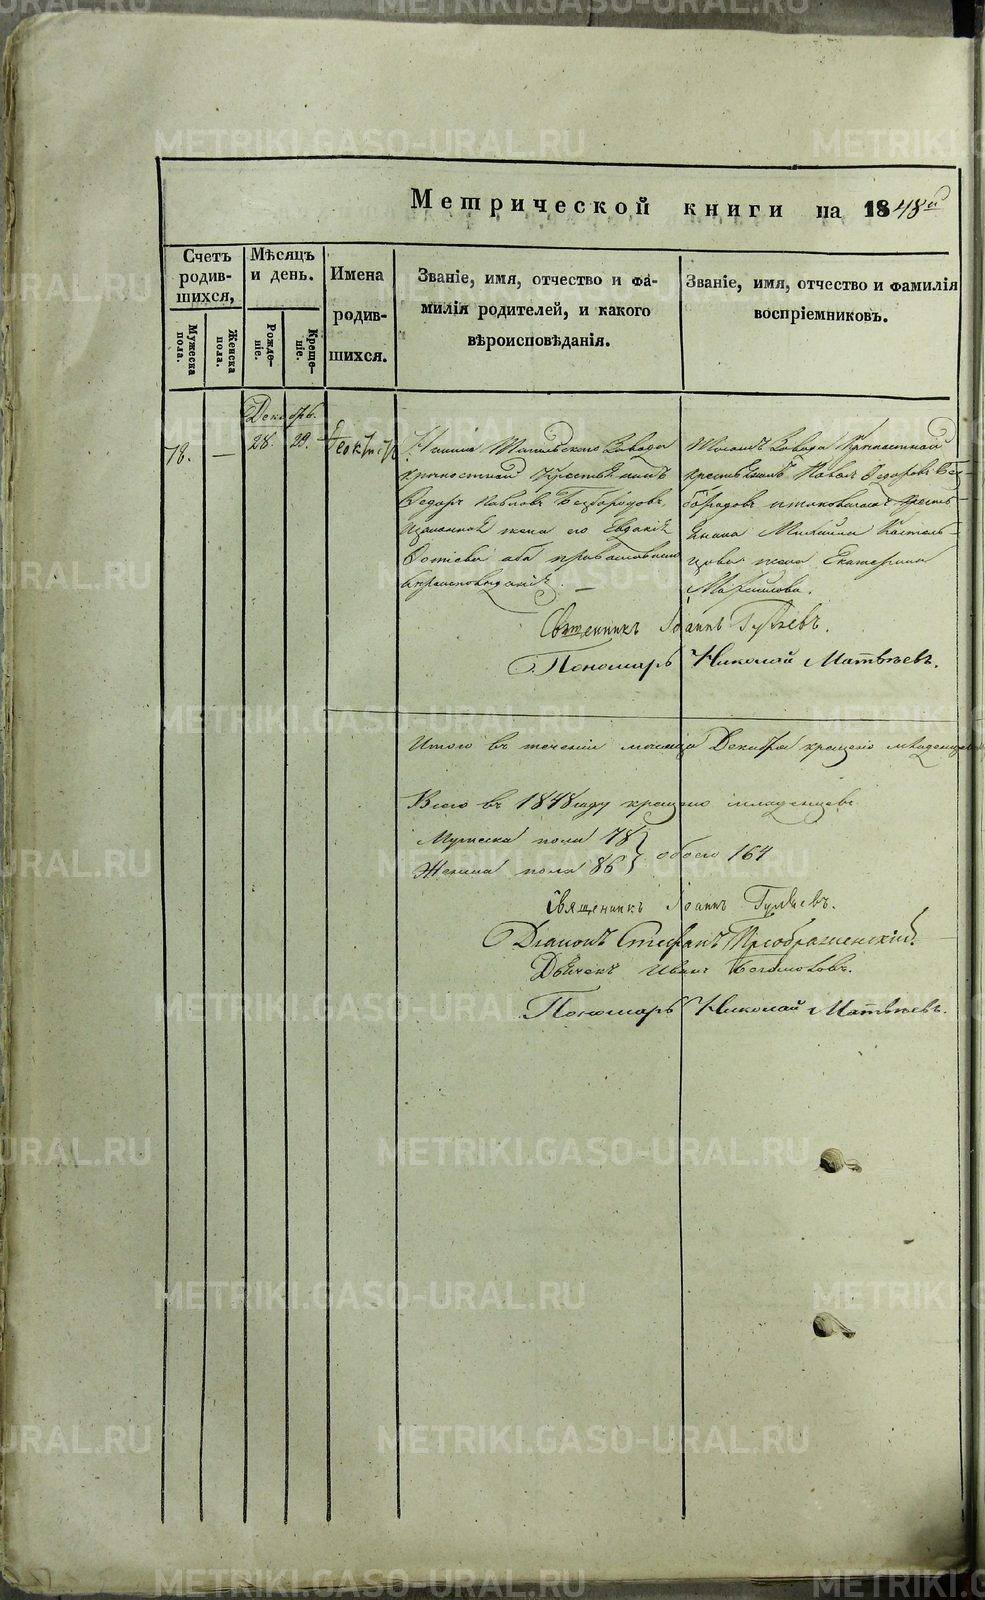 Метрической книги на 1848й
Счетъ родив-шихся,
Мужеска пола.
Женска пола.
Мѣсяцъ и день.
Рожде-ніе.
Креще-ніе.
Имена родив-шихся.
Званіе, имя, отчество и фа-
милія родителей, и какого
вѣроисповѣданія.
Званіе, имя, отчество и фамилія
воспріемниковъ.
Декабрь.
78. — 28. 29.
Тагильского Завода
крѣпостной крестьянинъ
Ѳедоръ Павловъ Безбородовъ,
законная жена его Евдокія
Фотіева оба православнаго
вѣроисповѣданія.
Завода Крѣпостной
крестьянинъ Павелъ Ѳедоровъ Без-
бородовъ кресть-
янина Михаила
жена Екатерина
Священникъ Іоаннъ
Пономарь Николай Матвѣевъ.
Итого въ теченіи мѣсяца Декабря крещено младенцевъ
Всего въ 1848 году крещено младенцевъ
Мужеска пола 78
Женска пола 86 } обоего 164
Священникъ Іоаннъ
Діаконъ Стефанъ Преображенскій.
Дьячекъ Иванъ Богомоловъ.
Пономарь Николай Матвѣевъ.
METRIKI.GASO-URAL.RU